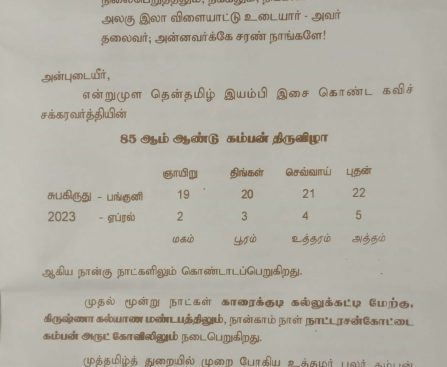 அலகு இலா விளையாட்டு உடையார் - அவர்
தலைவர்; அன்னவர்க்கே சரண் நாங்களே!
அன்புடையீர்,
என்றுமுள தென்தமிழ் இயம்பி இசை கொண்ட கவிச்
சக்கரவர்த்தியின்
85 ஆம் ஆண்டு கம்பன் திருவிழா
ஞாயிறு திங்கள் செவ்வாய் புதன்
சுபகிருது - பங்குனி 19 20 21 22
2023 - ஏப்ரல் 2 3 4 5
மகம் பூரம் உத்தரம் அத்தம்
ஆகிய நான்கு நாட்களிலும் கொண்டாடப்பெறுகிறது.
முதல் மூன்று நாட்கள் காரைக்குடி கல்லுக்கட்டி மேற்கு,
கிருஷ்ணா கல்யாண மண்டபத்திலும், நான்காம் நாள் நாட்டரசன்கோட்டை
கம்பன் அருட் கோவிலிலும் நடைபெறுகிறது.
முத்தமிழ்த் துறையில் முறை போகிய உத்தமர் பலர் கம்பன்